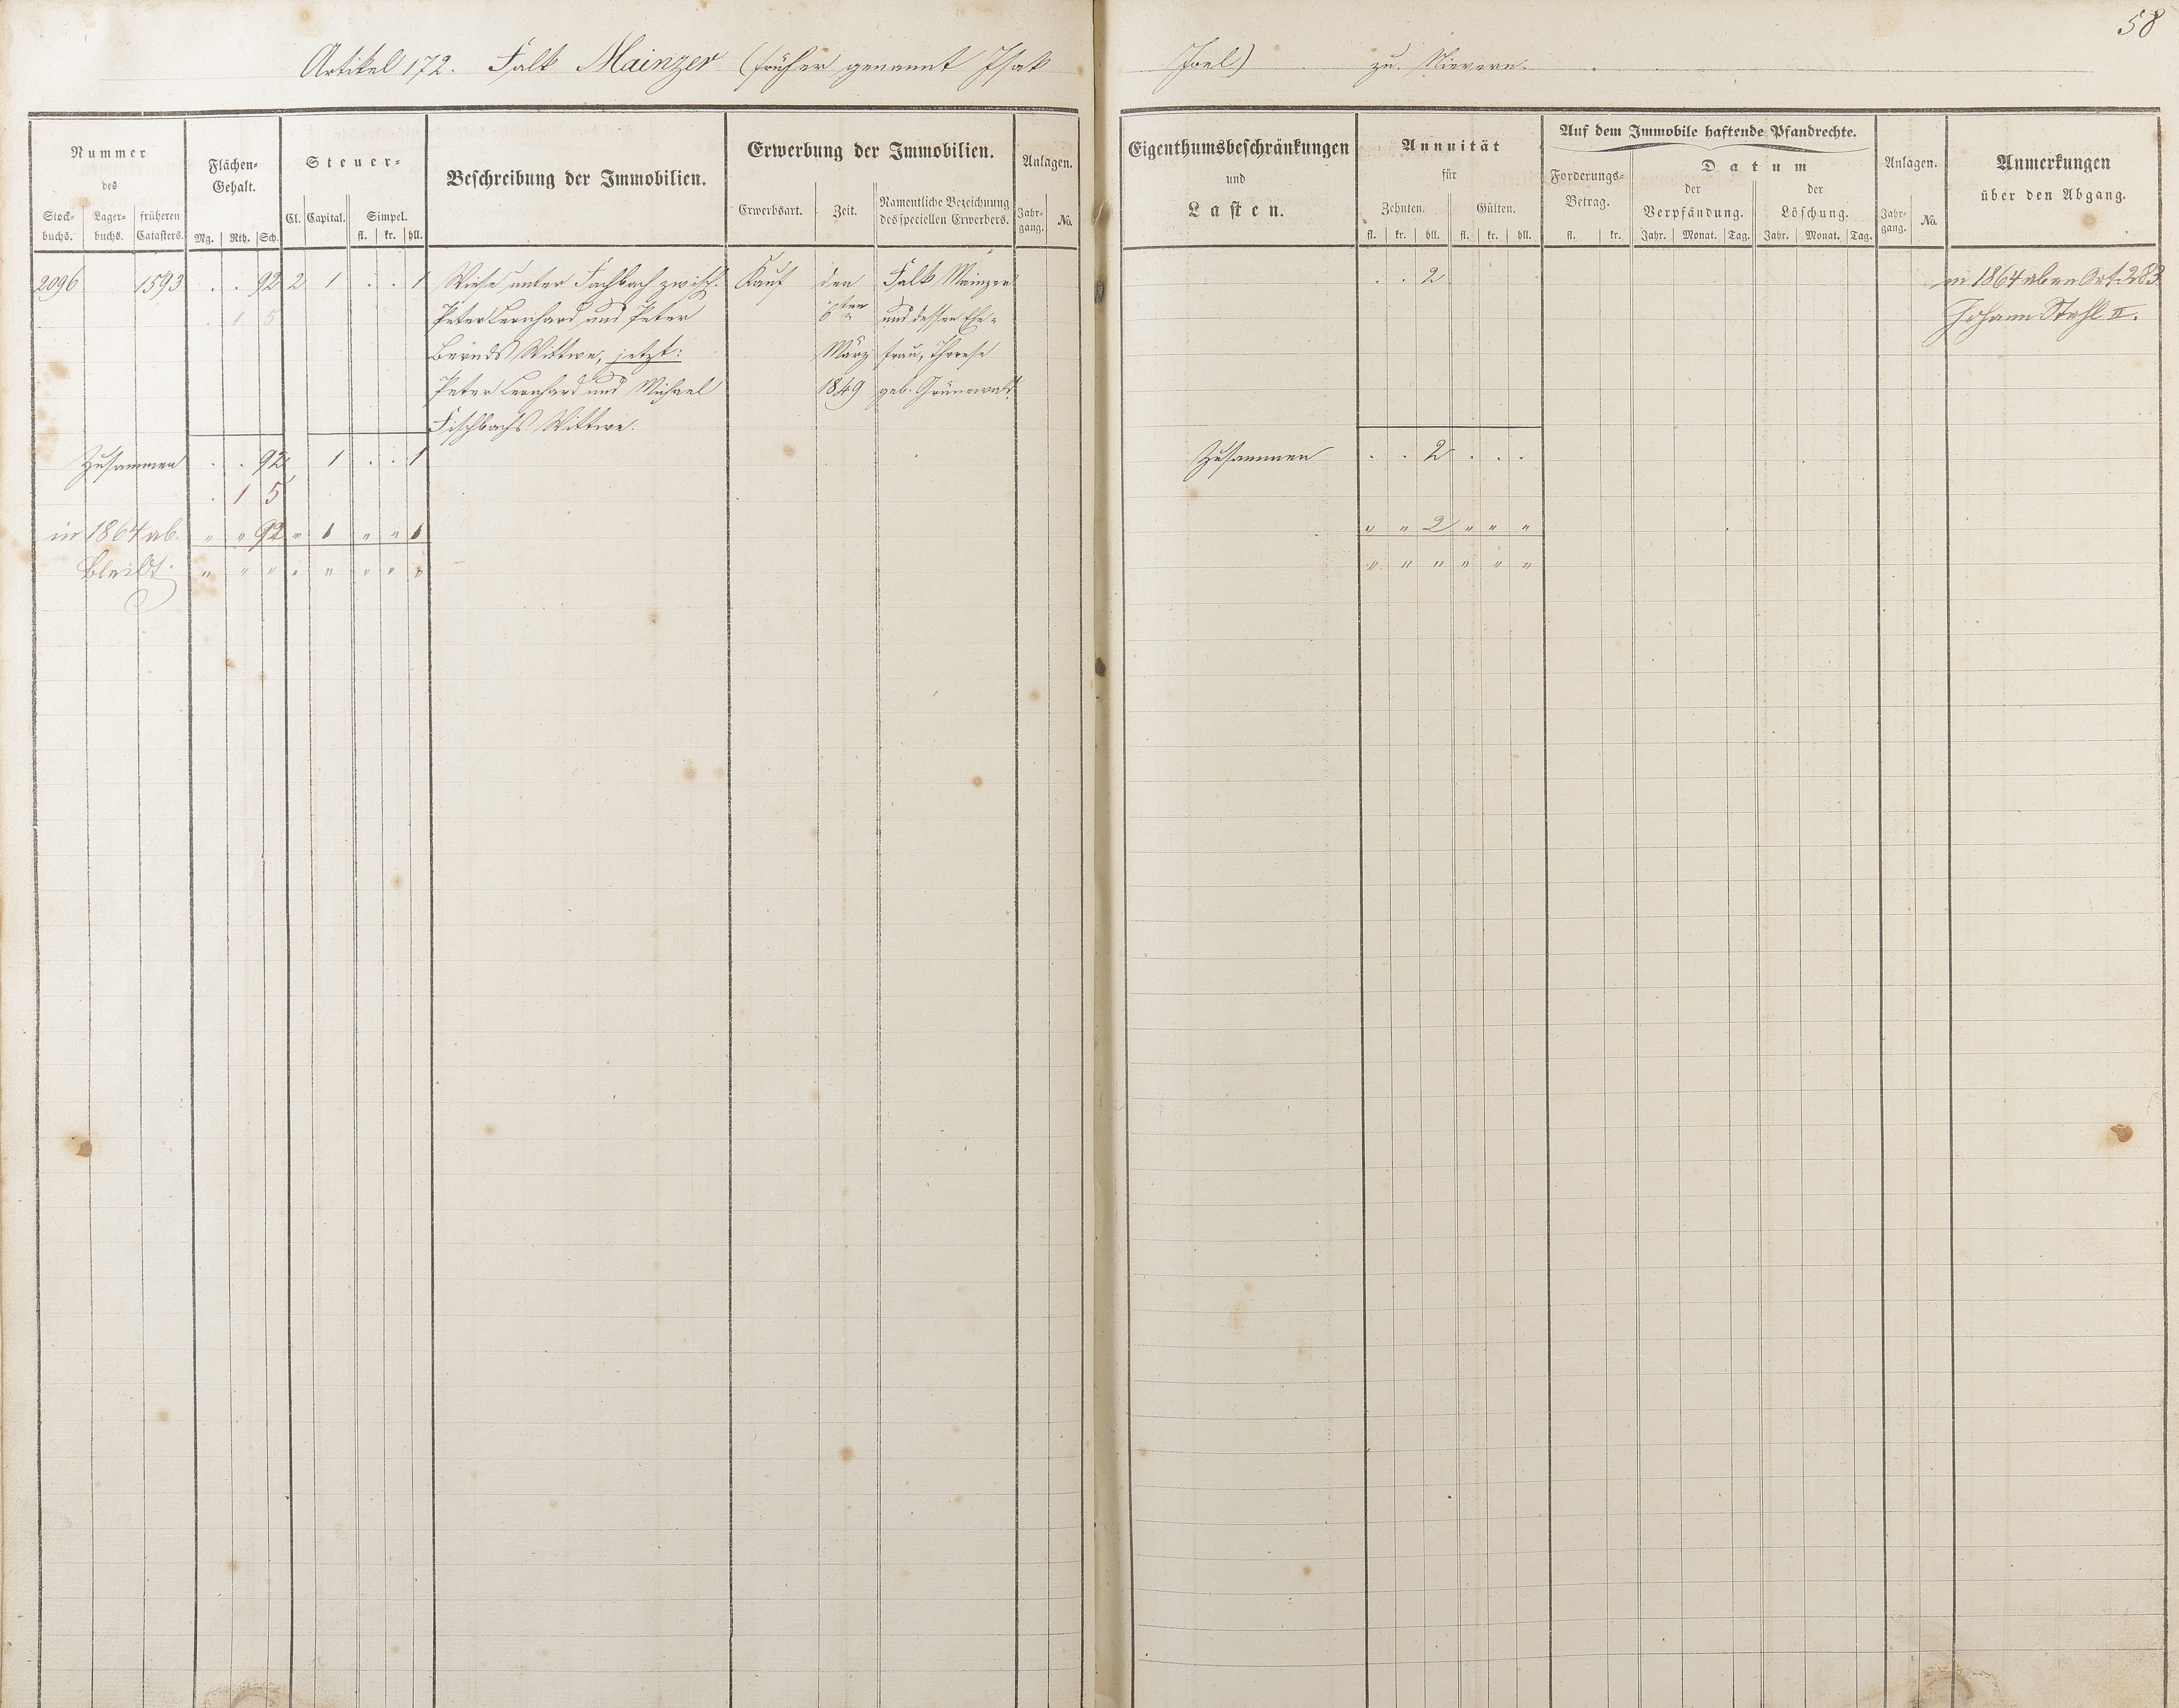 58
Artikel 172. Falk Mainzer (früher genannt Isak Joel) zu Nievern.
Nummer
des
Stock-
buchs.
Lager-
buchs.
früheren
Catasters.
Flächen-
Gehalt.
Mg. Rth. Sch.
Steuer-
Cl. Capital. Simpel.
fl. kr. hll.
Beschreibung der Immobilien.
Erwerbung der Immobilien.
Erwerbsart. Zeit. Namentliche Bezeichnung
des speciellen Erwerbers.
Anlagen.
Jahr-
gang. No.
Eigenthumsbeschränkungen
und
Lasten.
Annuität
für
Zehnten. Gülten.
fl. kr. hll. fl. kr. hll.
Auf dem Immobile haftende Pfandrechte.
Forderungs-
Betrag.
fl. kr.
Datum
der
Verpfändung.
der
Löschung.
Jahr. Monat. Tag. Jahr. Monat. Tag.
Anlagen.
Jahr-
gang. No.
Anmerkungen
über den Abgang.
2096 1593 . . 92 2 1 . . 1 Wiese unter Fachbach zwisch. Kauf den Falk Mainzer . . 2 in 1864 ab an Art. 283
. 1 5 Peter Lernhard und Peter 6ten und dessen Ehe- Johann Stahl II.
Bernds Wittwe, jetzt: März frau, Therese
Peter Lernhard und Michael 1849 geb. Grünewald
Fischbachs Wittwe.
Zusammen . . 92 1 . . 1 Zusammen . . 2 . . .
. 1 5
in 1864 ab. " " 92 " 1 " " 1 " " 2 " " "
Bleibt: " " " " " " " " " " " " " "